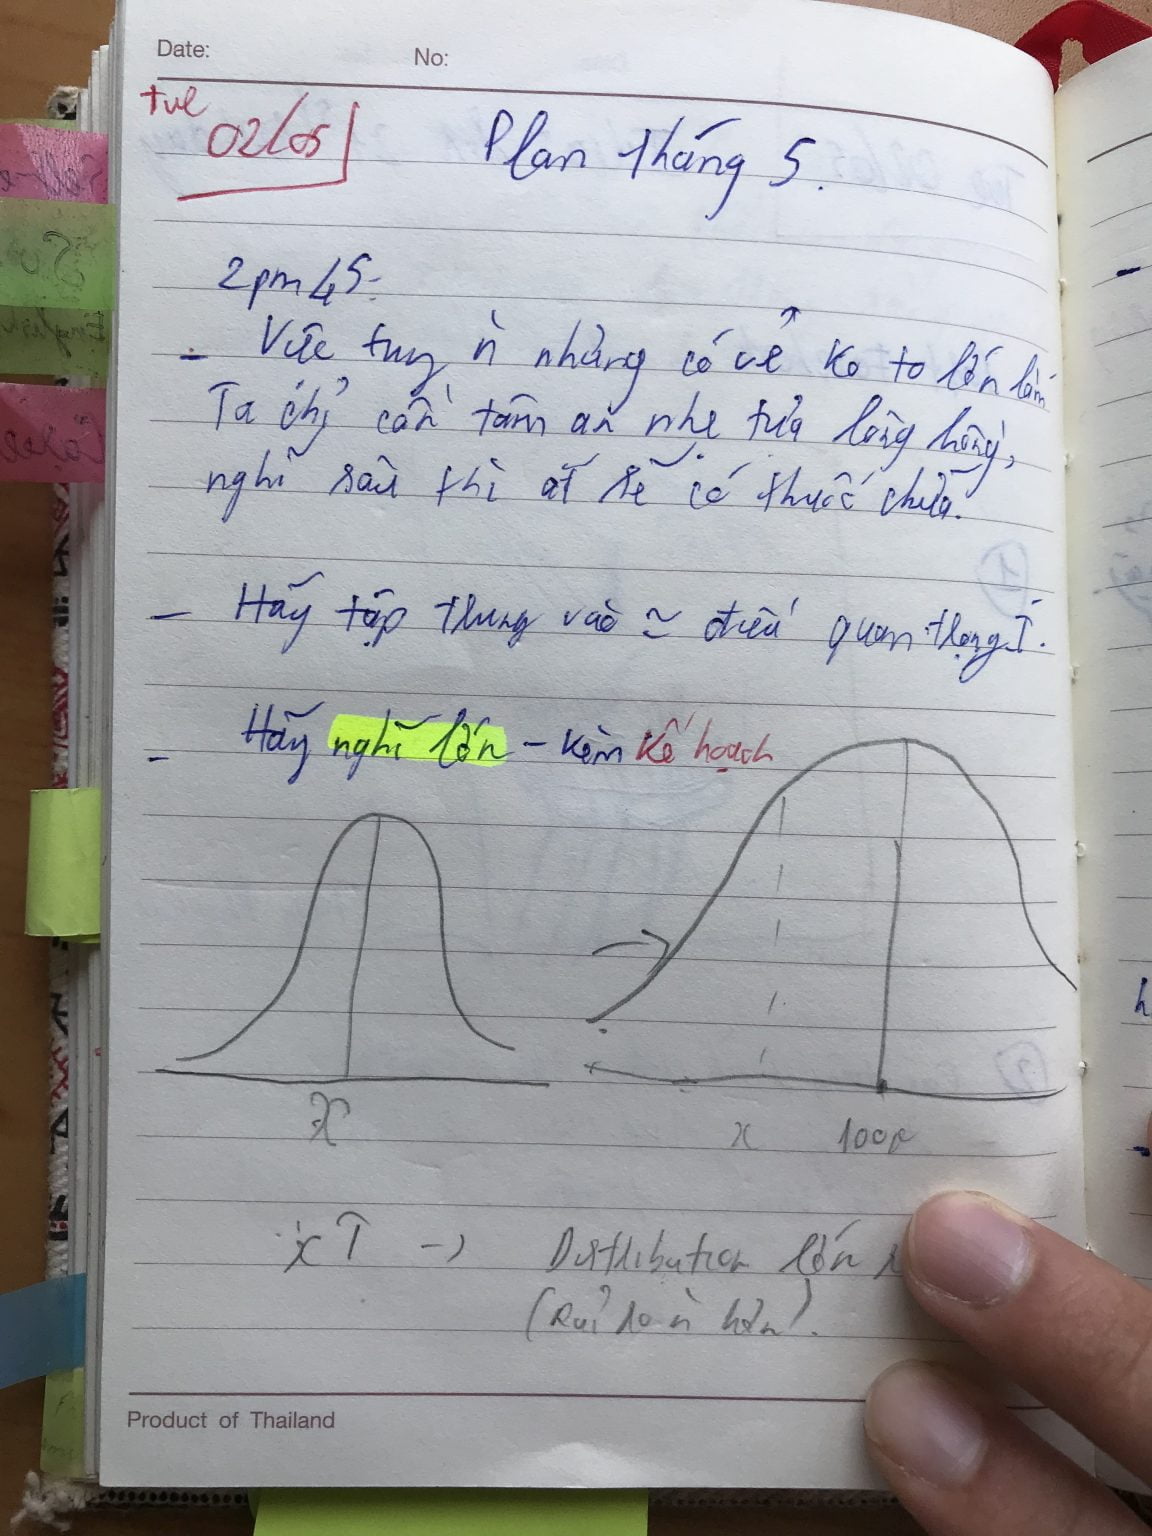 Date:
No:
tue
02/05
Plan tháng 5.
2pm45:
- Việc tuy ì nhưng có vẻ ko to lớn lắm
Ta chỉ cần tâm an nhẹ tựa lông hồng,
nghĩ sâu thì ắt sẽ có thuốc chữa.
- Hãy tập trung vào ≃ điều quan trọng I.
- Hãy nghĩ lớn - kèm kế hoạch
x
x
100x
x↑ → Distribution lớn
(Rủi ro ì hơn).
Product of Thailand